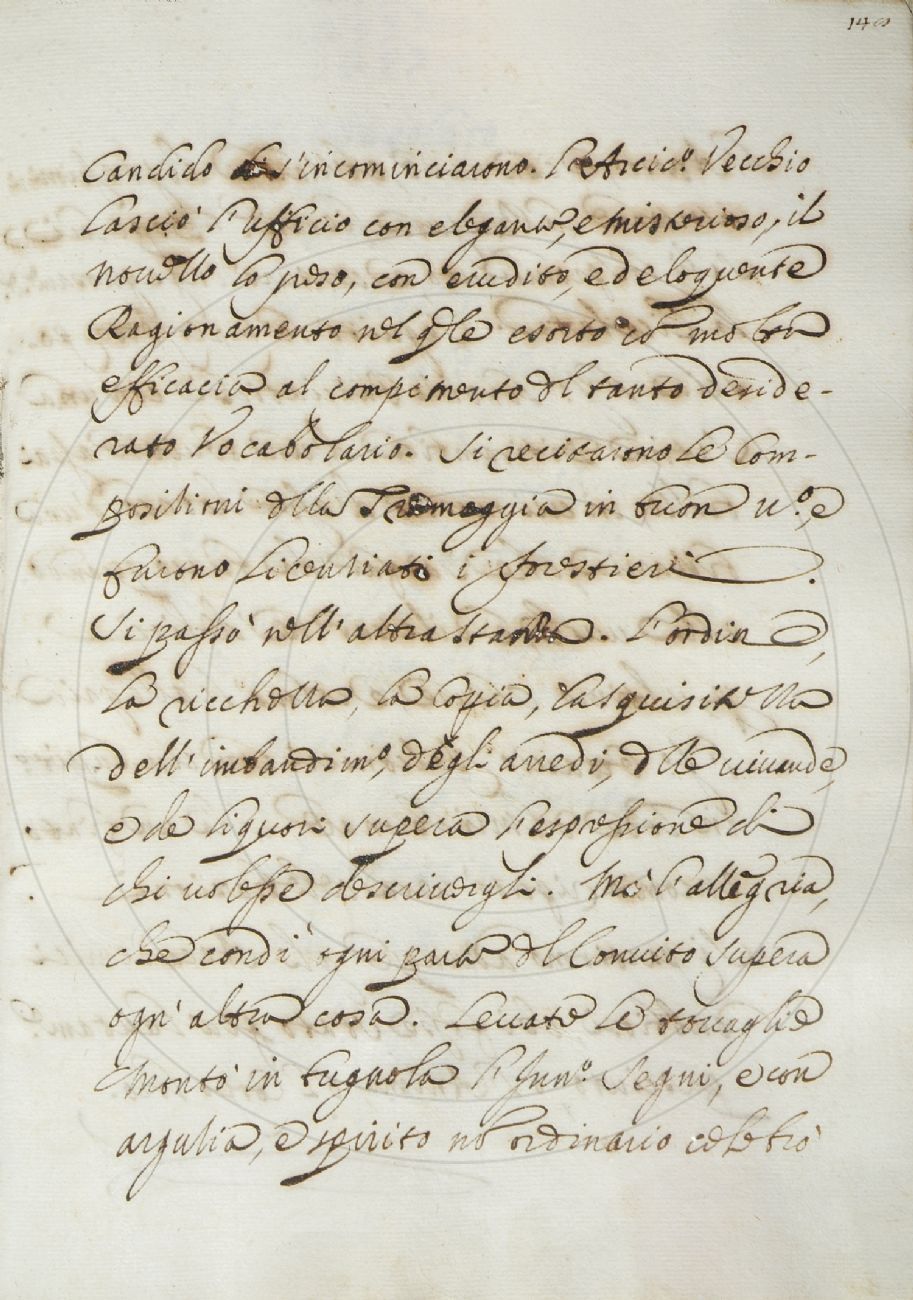 140
Candido s'incominciarono. L'Arcic.o Vecchio
lasciò l'ufficio con elegante, e misterioso, il
novello lo prese, con erudito, ed eloquente
Ragionamento nel q̃le esortò cõ molta
efficacia al compimento dl tanto deside-
rato Vocabolario. Si recitarono le Com-
positioni dlla Tramoggia in buon n.o, e
furono licentiati i forestieri.
Si passò nell'altra stanza. L'ordine,
la ricchezza, la copia, l'a squisitezza
dell'imbandim.o, degli arredi, dlle vivande,
e de liquori supera l'espressione di
chi volesse descrivergli. Mà l'allegria,
che condì ogni parte dl Convito supera
ogn'altra cosa. Levate le tovaglie
Montò in bugnola l'Inn.o Segni, e con
argutia, e spirito nõ ordinario celebrò